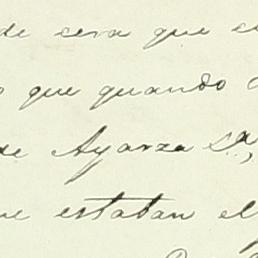 de cera que
que quando
de Ayarza Sª,
que estaban el